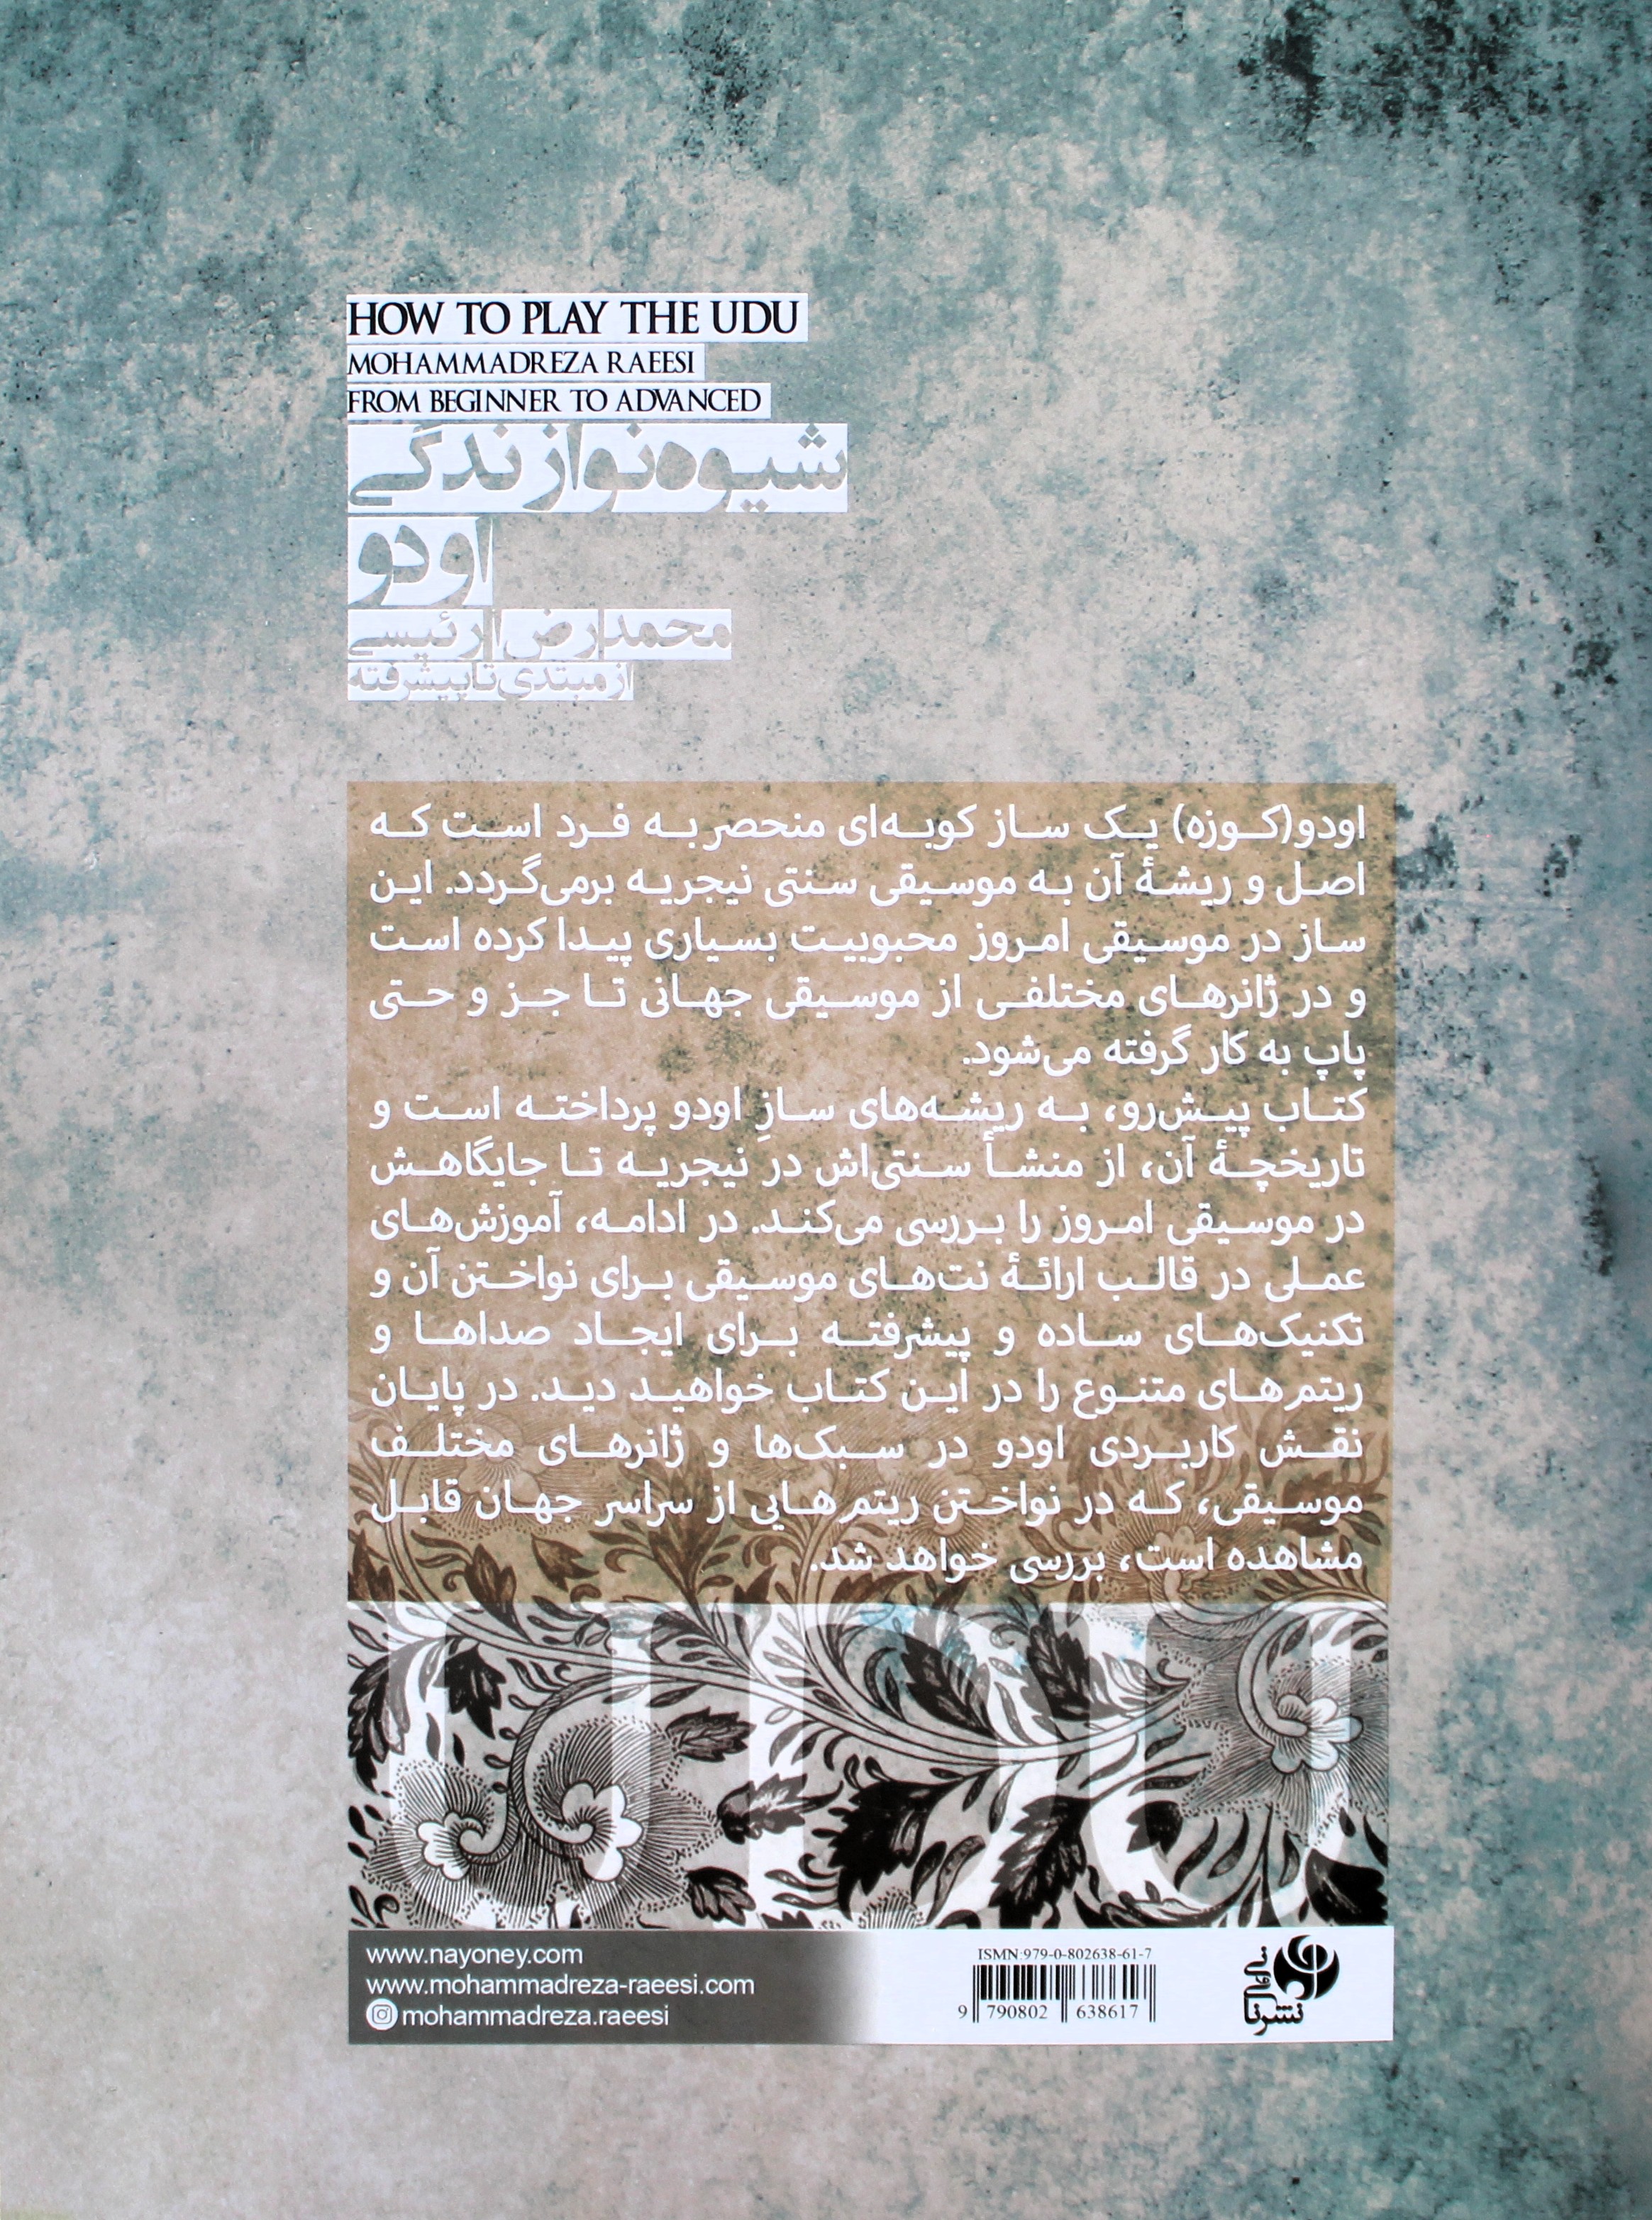 HOW TO PLAY THE UDU
MOHAMMADREZA RAEESI
FROM BEGINNER TO ADVANCED
شیوه نوازندگی
اودو
محمدرضا رئیسی
از مبتدی تا پیشرفته
اودو(کوزه) یک ساز کوبه‌ای منحصر به فرد است که
اصل و ریشهٔ آن به موسیقی سنتی نیجریه برمی‌گردد. این
ساز در موسیقی امروز محبوبیت بسیاری پیدا کرده است
و در ژانرهای مختلفی از موسیقی جهانی تا جز و حتی
پاپ به کار گرفته می‌شود.
کتاب پیش‌رو، به ریشه‌های سازِ اودو پرداخته است و
تاریخچهٔ آن، از منشأ سنتی‌اش در نیجریه تا جایگاهش
در موسیقی امروز را بررسی می‌کند. در ادامه، آموزش‌های
عملی در قالب ارائهٔ نت‌های موسیقی برای نواختن آن و
تکنیک‌های ساده و پیشرفته برای ایجاد صداها و
ریتم‌های متنوع را در این کتاب خواهید دید. در پایان
نقش کاربردی اودو در سبک‌ها و ژانرهای مختلف
موسیقی، که در نواختن ریتم هایی از سراسر جهان قابل
مشاهده است، بررسی خواهد شد.
UDU
www.nayoney.com
www.mohammadreza-raeesi.com
mohammadreza.raeesi
ISMN:979-0-802638-61-7
9 790802 638617
نشر نای و نی